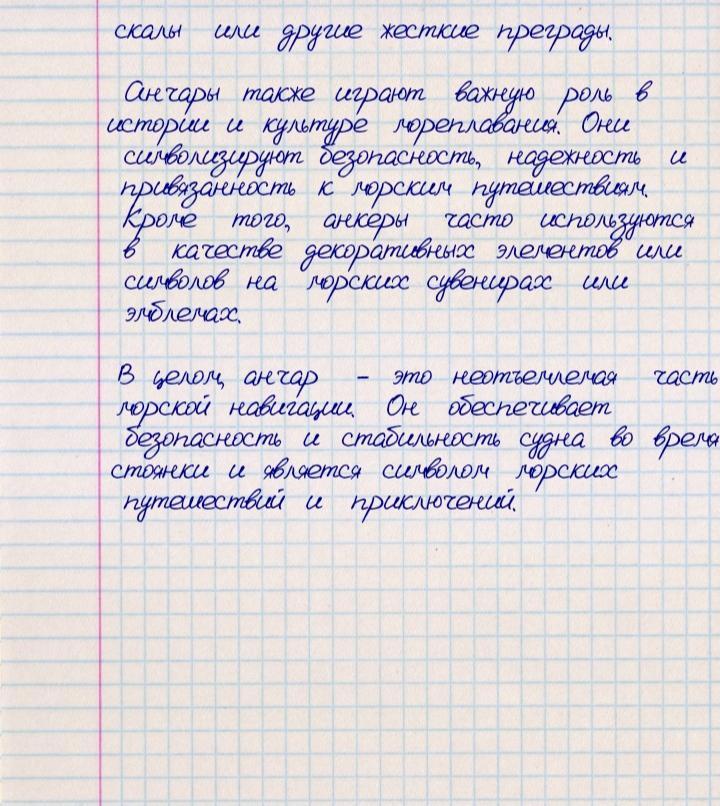 скалы или другие жесткие преграды.
Анчары также играют важную роль в
истории и культуре мореплавания. Они
символизируют безопасность, надежность и
привязанность к морским путешествиям.
Кроме того, анкеры часто используются
в качестве декоративных элементов или
символов на морских сувенирах или
эмблемах.
В целом, анчар - это неотъемлемая часть
морской навигации. Он обеспечивает
безопасность и стабильность судна во время
стоянки и является символом морских
путешествий и приключений.